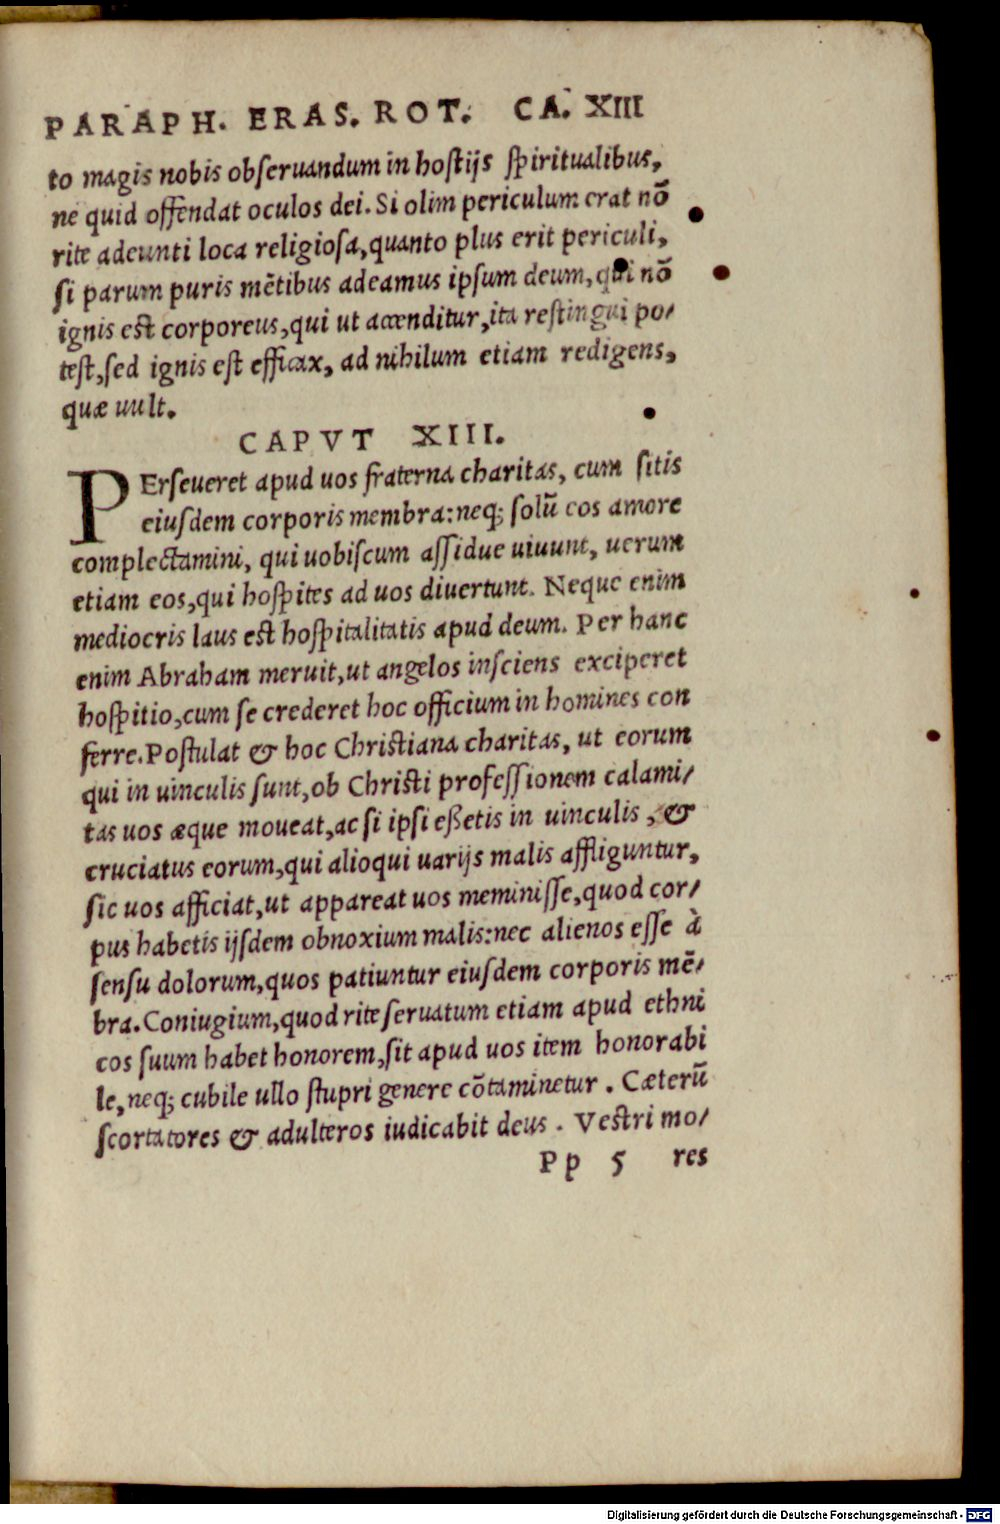 PARAPH. ERAS. ROT. CA. XIII
to magis nobis obseruandum in hostijs spiritualibus,
ne quid offendat oculos dei. Si olim periculum erat nō
rite adeunti loca religiosa, quanto plus erit periculi,
si parum puris mētibus adeamus ipsum deum, qui nō
ignis est corporeus, qui ut accenditur, ita restingui po/
test, sed ignis est efficax, ad nihilum etiam redigens,
quæ uult.
CAPVT XIII.
PErseueret apud uos fraterna charitas, cum sitis
eiusdem corporis membra: neq; solū eos amore
complectamini, qui uobiscum assidue uiuunt, uerum
etiam eos, qui hospites ad uos diuertunt. Neque enim
mediocris laus est hospitalitatis apud deum. Per hanc
enim Abraham meruit, ut angelos insciens exciperet
hospitio, cum se crederet hoc officium in homines con
ferre. Postulat & hoc Christiana charitas, ut eorum
qui in uinculis sunt, ob Christi professionem calami/
tas uos æque moueat, ac si ipsi eßetis in uinculis, &
cruciatus eorum, qui alioqui uarijs malis affliguntur,
sic uos afficiat, ut appareat uos meminisse, quod cor/
pus habetis ijsdem obnoxium malis: nec alienos esse à
sensu dolorum, quos patiuntur eiusdem corporis mē/
bra. Coniugium, quod rite seruatum etiam apud ethni
cos suum habet honorem, sit apud uos item honorabi
le, neq; cubile ullo stupri genere cōtaminetur. Cæterū
scortatores & adulteros iudicabit deus. Vestri mo/
Pp 5 res
Digitalisierung gefördert durch die Deutsche Forschungsgemeinschaft - DFG